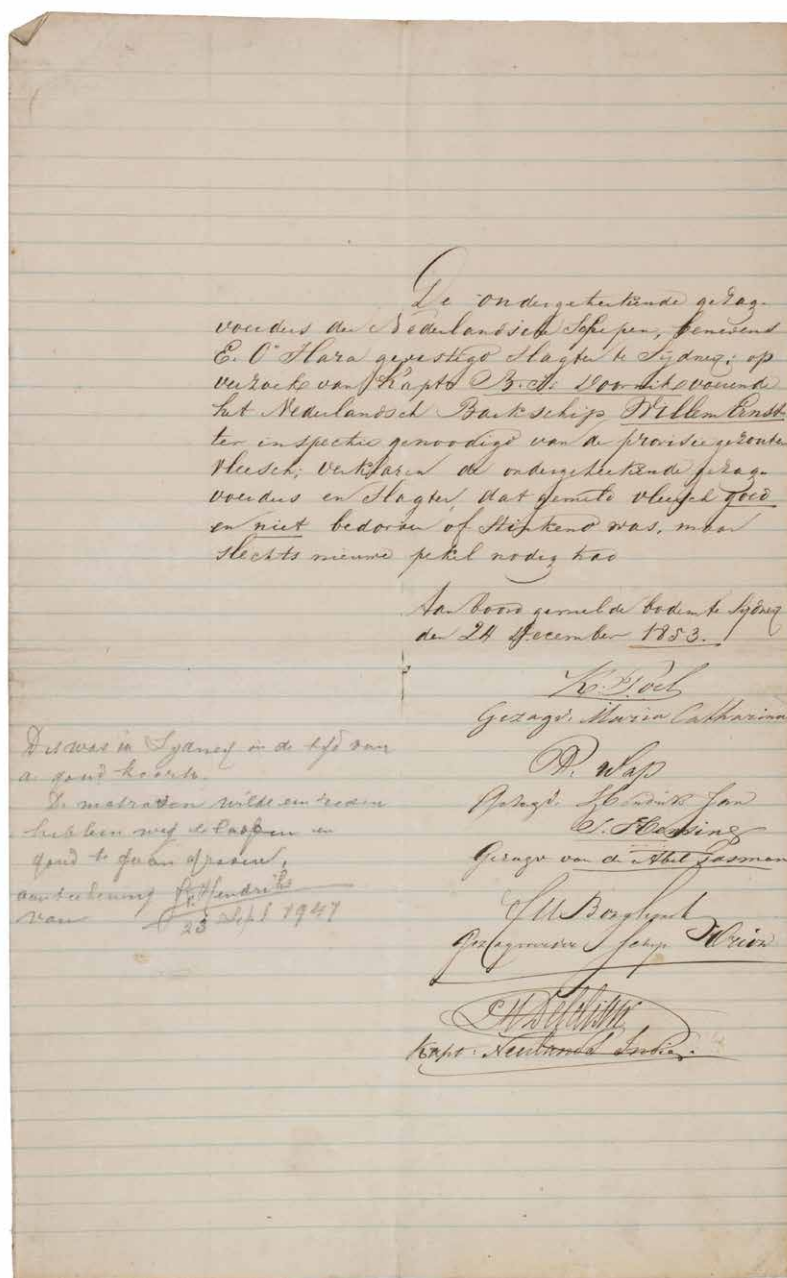 De ondergeteekende gezag-
voerders der Nederlandsche Schepen, benevens
E. O'Hara gevestigd Slagter te Sydney; op
verzoek van Kapt. voerende
het Nederlandsch Barkschip Willem Ernst
ter inspectie genoodigd van de provisie gezouten
vleesch; verklaren de ondergeteekende gezag-
voerders en Slagter, dat gemeld vleesch goed
en niet bedorven of stinkend was, maar
slechts nieuwe pekel nodig had
Aan boord gemelde bodem te Sydney
den 24 December 1853.
Gezagv. Maria Catharina
Gezagv. Hendrik Jan
Gezagv van de Abel Tasman
Gezagvoerder Schip Orion
Kapt. Indie.
Dit was in Sydney in de tijd van
goud koorts.
De matrozen wilde een reden
hebben weg te loopen en
goud te gaan graven.
aanteekening Hendriks
van 23 Sept 1947